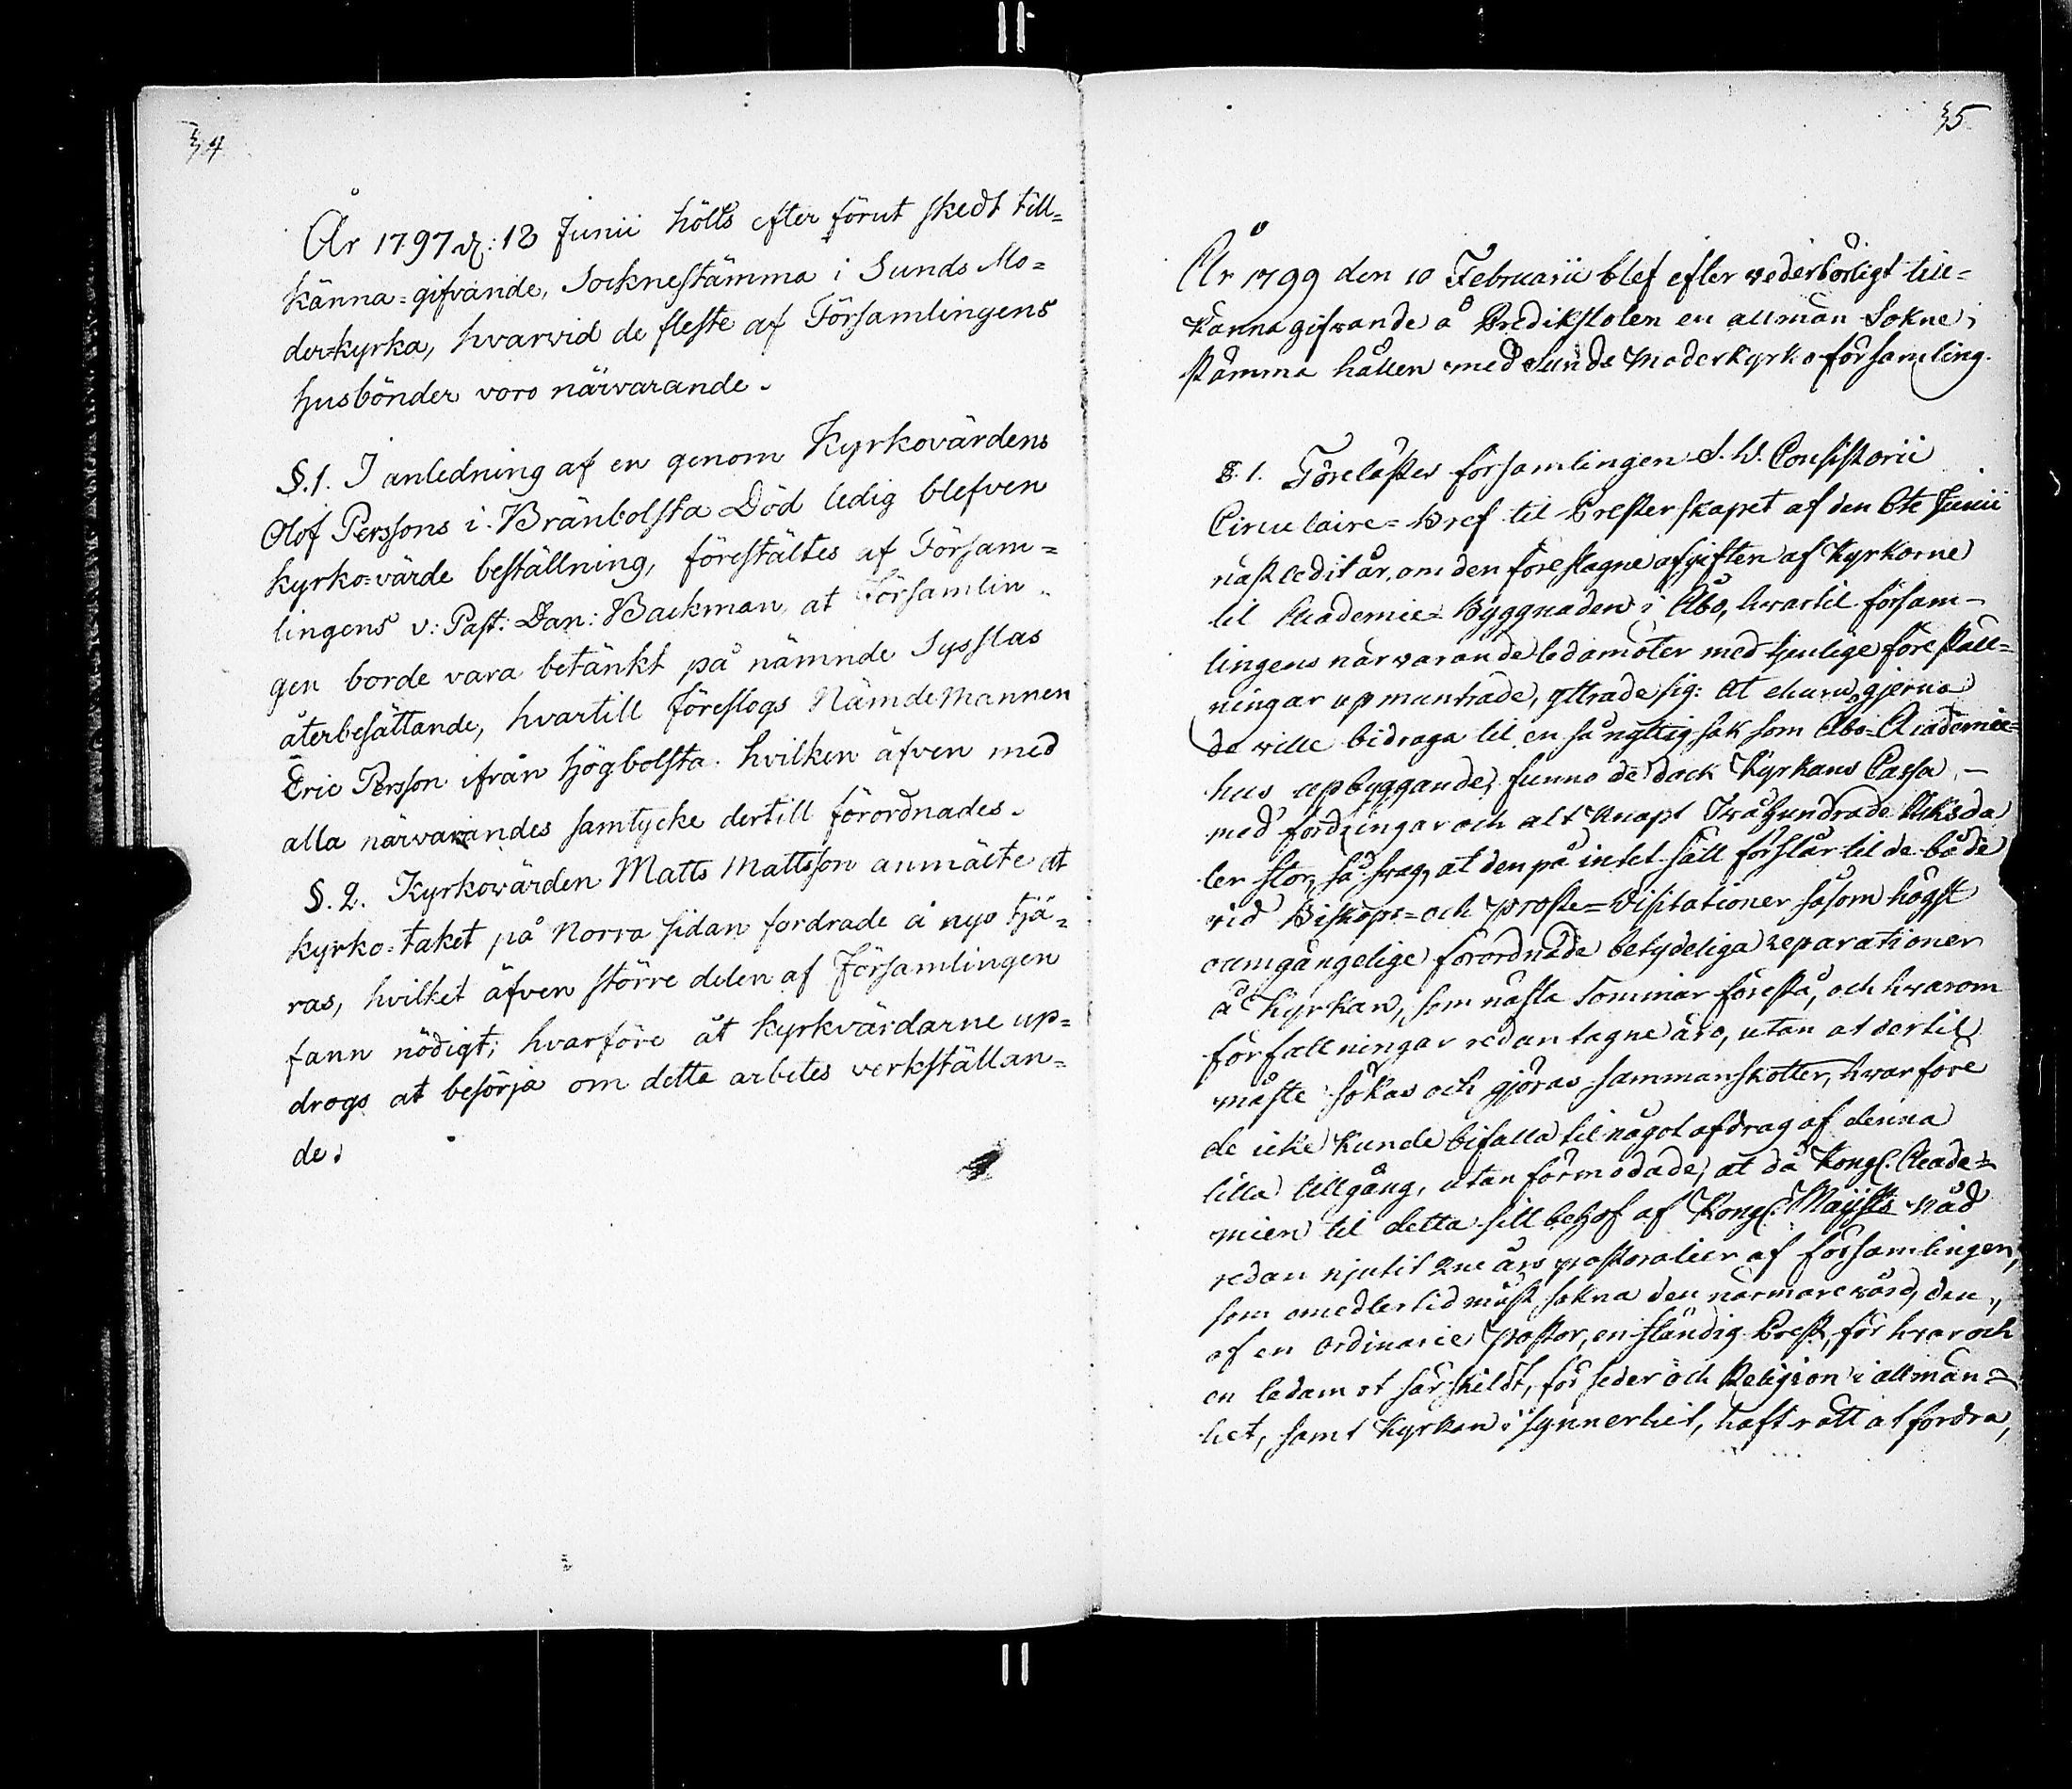 34
År 1797 d: 18 Junii hölts efter förut skedt till=
känna=gifvande, Socknestämma i Sunds Mo=
der=kyrka, hvarvid de fleste af Församlingens
husbönder voro närvarande.
§.1. I anledning af en genom Kyrkovärdens
Olof Perssons i Bränbolsta Död ledig blefven
kyrko=värde beställning, föreståltes af Försam=
lingens v: Past: Dan: Backman, at Församlin=
gen borde vara betänkt på nämnde Sysslas
återbesättande, hvartill föreslogs Nämdemannen
Eric Persson ifrån Högbolsta. hvilken äfven med
alla närvarandes samtycke dertill förordnades.
§. 2. Kyrkovärden Matts Mattsson anmälte at
kyrko=taket på Norra sidan fordrade å nyo tjä=
ras, hvilket äfven större delen af Församlingen
fann nödigt; hvarföre åt kyrkvärdarne up=
drogs at besörja om detta arbetes verkställan=
de.
35
År 1799 den 10 Februarii blef efter vederbörligt till=
känna gifvande å Predikstolen en allmän Sokne=
stämma hållen med Sunds Moderkyrko församling.
§. 1. Förelästes församlingen S. W. Consistorii
Circulaire=Bref til Presterskapet af den 6te Junii
näst ledit år, om den föreslagne afgiften af Kyrkorne
til Academie=Byggnaden i Åbo, hvartil försam=
lingens närvarande ledamöter med tjenlige föreställ=
ningar upmuntrade, yttrade sig: at ehuru gjerna
de ville bidraga til en så nyttig sak som Åbo=Academie=
hus upbyggande, funno de dock Kyrkans Cassa,
med fordringar och alt knapt Tvåhundrade Riksda
ler stor, så svag, at den på intet sätt förslår til de både
vid Biskops=och Proste=Visitationer såsom högst
oumgängelige förordnade betydeliga reparationer
å Kyrkan, som nästa Sommar förestå, och hvarom
författningar redan tagne äro, utan at dertil
måste sökas och gjöras sammanskotter, hvarföre
de icke kunde bifalla til något afdrag af denna
lilla tillgång, utan förmodade, at då Kongl. Acade=
mien til detta sitt behof af Kongl. Maijsts Nåd
redan njutit 2ne års pastoralier af församlingen,
som emedlertid måst sakna den närmare vård, den,
af en ordinarie Pastor, en ständig Prest, för hvar och
en ledamot särskildt, för seder och Religion i allmän=
het, samt Kyrkan i synnerhet, haft rätt at fordra,